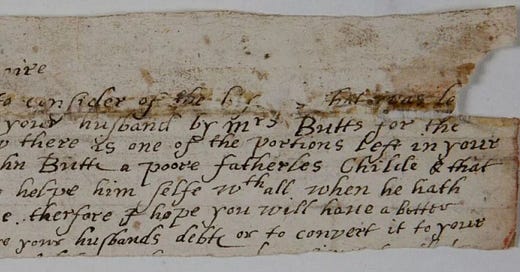 oire
to consider of the hat was le
your husband by mrs Butts for the
there is one of the portions left in your
hn Butte a poore fatherles Childe & that
helpe him selfe wth all when he hath
e therfore I hope you will haue a better
re your husbands debte or to convert it to your